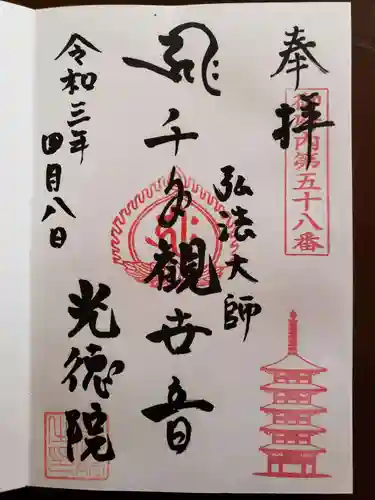 奉拝
御府内第五十八番
弘法大師
千手觀世音
令和三年
四月八日
光德院